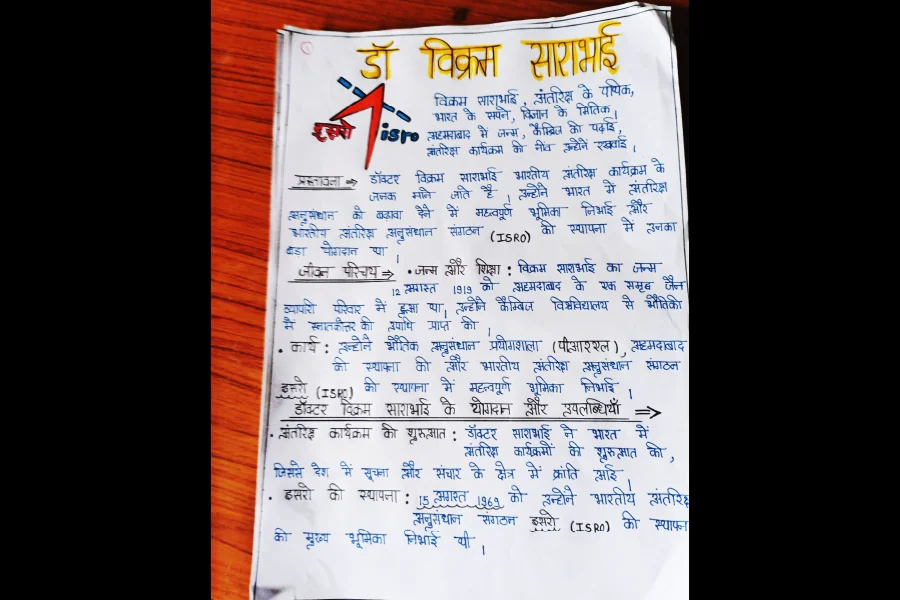 डॉ विक्रम साराभाई
विक्रम साराभाई, अंतरिक्ष के पथिक,
भारत के सपने, विज्ञान के मितिक।
अहमदाबाद में जन्म, कैम्ब्रिज की पढ़ाई,
अंतरिक्ष कार्यक्रम की नींव उन्होंने रखवाई।
इसरो isro
प्रस्तावना ⇒ डॉक्टर विक्रम साराभाई भारतीय अंतरिक्ष कार्यक्रम के
जनक माने जाते है। उन्होंने भारत में अंतरिक्ष
अनुसंधान को बढ़ावा देने में महत्वपूर्ण भूमिका निभाई और
भारतीय अंतरिक्ष अनुसंधान संगठन (ISRO) की स्थापना में उनका
बड़ा योगदान था।
जीवन परिचय ⇒ • जन्म और शिक्षा : विक्रम साराभाई का जन्म
12 अगस्त 1919 को अहमदाबाद के एक समृद्ध जैन
व्यापारी परिवार में हुआ था। उन्होंने कैम्ब्रिज विश्वविद्यालय से भौतिकी
में स्नातकोत्तर की उपाधि प्राप्त की।
• कार्य : उन्होंने भौतिक अनुसंधान प्रयोगशाला (पीआरएल), अहमदाबाद
की स्थापना की और भारतीय अंतरिक्ष अनुसंधान संगठन
इसरो (ISRO) की स्थापना में महत्वपूर्ण भूमिका निभाई।
डॉक्टर विक्रम साराभाई के योगदान और उपलब्धियाँ ⇒
• अंतरिक्ष कार्यक्रम की शुरुआत : डॉक्टर साराभाई ने भारत में
अंतरिक्ष कार्यक्रमों की शुरुआत की,
जिससे देश में सूचना और संचार के क्षेत्र में क्रांति आई।
• इसरो की स्थापना : 15 अगस्त 1969 को उन्होंने भारतीय अंतरिक्ष
अनुसंधान संगठन इसरो (ISRO) की स्थापना
की मुख्य भूमिका निभाई थी।